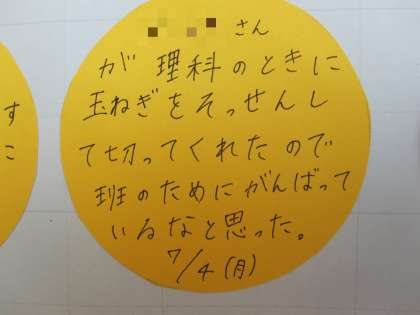 さん
が 理科のときに
玉ねぎをそっせんし
て切ってくれたので
班のためにがんばって
いるなと思った。
7/4(月)
す
こ